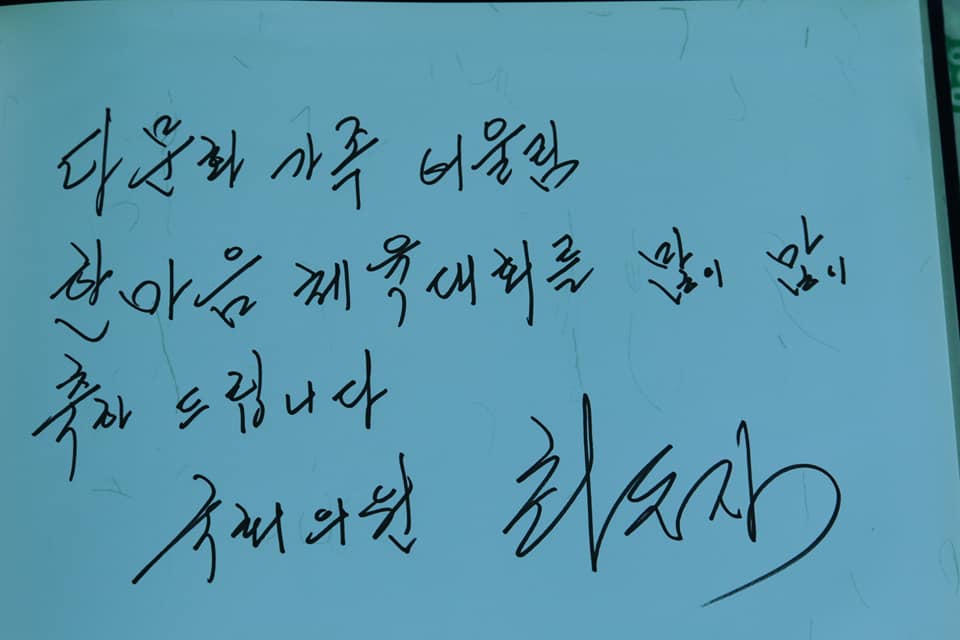 다문화 가족 어울림
한마음 체육대회를 많이 많이
축하 드립니다
국회의원 최운열